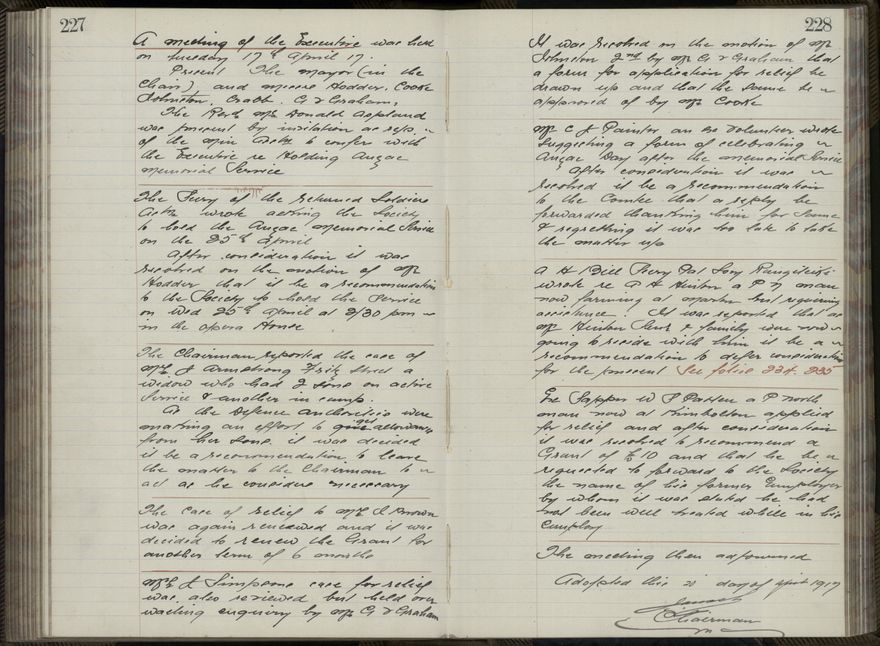 227
A meeting of the Executive was held
on Tuesday 17th April 17.
Present The Mayor (in the
Chair) and Messrs Hodder, Cooke
Johnston, Crabb, G V Graham,
The Revd Mr Donald
was present by invitation as reps
of the Min Assn to confer with
the Executive re Holding Anzac
Memorial Service
The Secy of the Returned Soldiers
Assn wrote asking the Society
to hold the Anzac Memorial Service
on the 25th April
After consideration it was
resolved on the motion of Mr
Hodder that it be a recommendation
to the Society to hold the Service
on Wed 25th April at 2/30 pm
in the Opera House
The Chairman reported the case of
Mrs J Armstrong Fitz St a
widow who had 2 sons on active
Service & another in camp.
As the Defence Authorities were
making an effort to get allowance
from her sons, it was decided
it be a recommendation to leave
the matter to the Chairman to
act as he considers necessary
The case of relief to Mrs Brown
was again reviewed and it was
decided to renew the Grant for
another term of 6 months
Mrs J Simpsons case for relief
was also reviewed but held over
waiting enquiry by Mr G V Graham
228
It was resolved on the motion of Mr
Johnston 2nd by Mr G V Graham that
a form for application for relief be
drawn up and that the same be
approved of by Mr Cooke
Mr C J Painter an ex Volunteer wrote
suggesting a form of celebrating
Anzac Day after the Memorial Service
After consideration it was
resolved it be a recommendation
to the Comtee that a reply be
forwarded thanking him for same
& regretting it was too late to take
the matter up
A H Bell Secy Pat Socy Rangitikei
wrote re A H Hinton a P N man
now farming at Marton but requiring
assistance. It was reported that as
Mr Hinton Senr & family were now
going to reside with him it be a
recommendation to defer consideration
for the present See folio 234. 235
Ex Sapper W J a P North
man now at Kimbolton applied
for relief and after consideration
it was resolved to recommend a
Grant of £10 and that he be
requested to forward to the Society
the name of his former Employer
by whom it was stated he had
not been well treated while in his
Employ
The meeting then adjourned
Adopted this 21 day of April 1917
Chairman